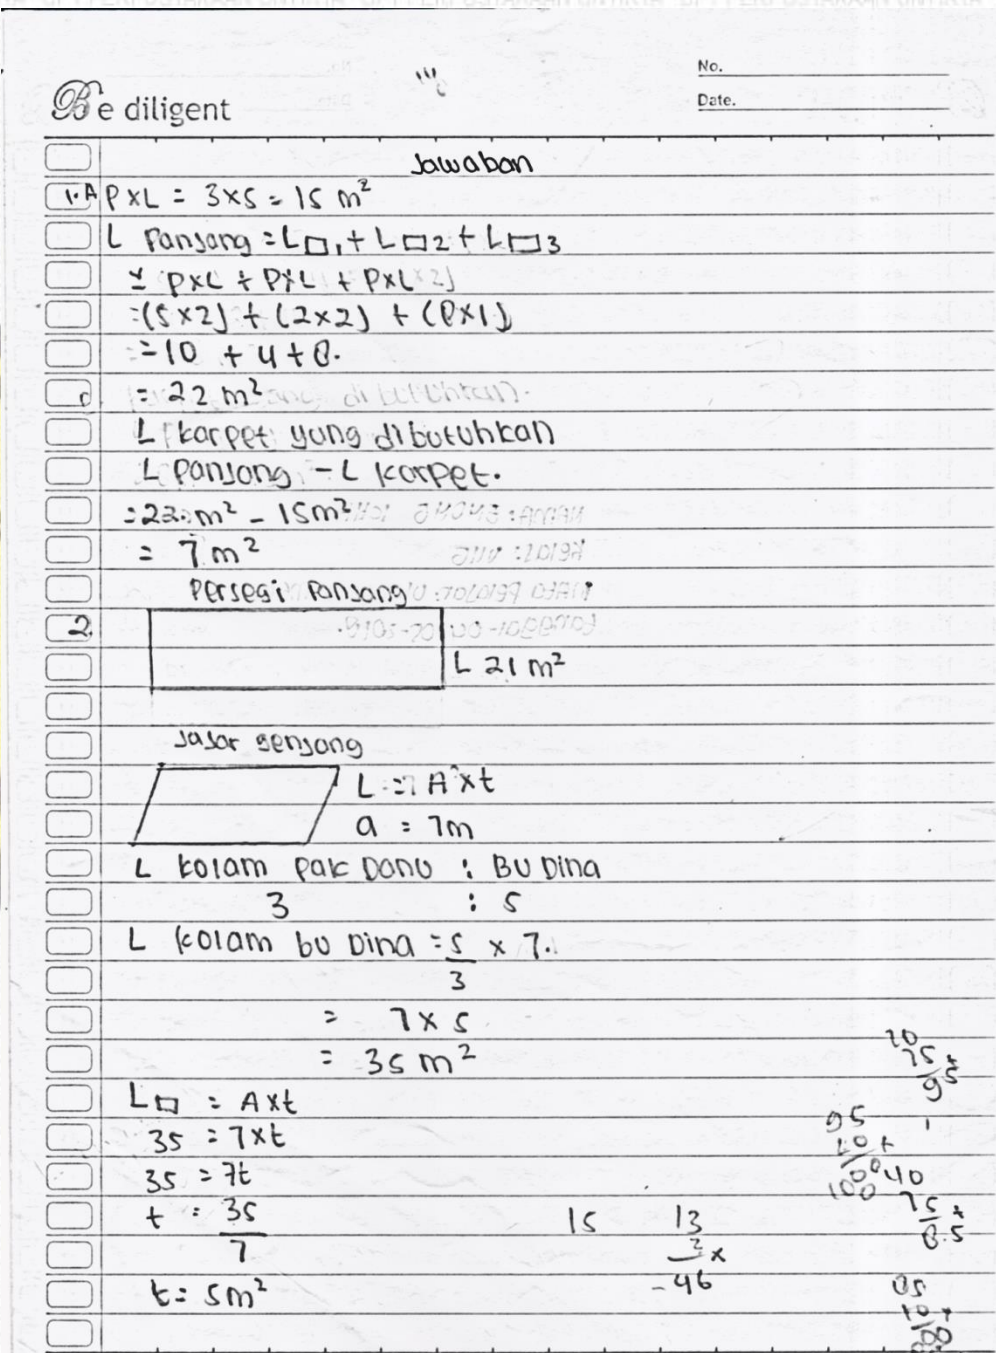 No.
Be diligent
Date.
Jawaban
1.A P×L = 3×5 = 15 m²
L Panjang = L▭1 + L▭2 + L▭3
= P×L + P×L + P×L
=(5×2) + (2×2) + (8×1)
= 10 + 4 + 8.
= 22 m²
L karpet yang dibutuhkan
L Panjang - L karpet.
= 22 m² - 15m²
= 7 m²
Persegi Panjang
2.
L 21 m²
Jajar genjang
L = A×t
a = 7m
L kolam pak Danu : Bu Dina
3 : 5
L kolam bu Dina = 5/3 × 7.
= 7 × 5
= 35 m²
L▱ = A×t
35 = 7×t
35 = 7t
t = 35/7
t = 5m²
15
13
2 ×
-46